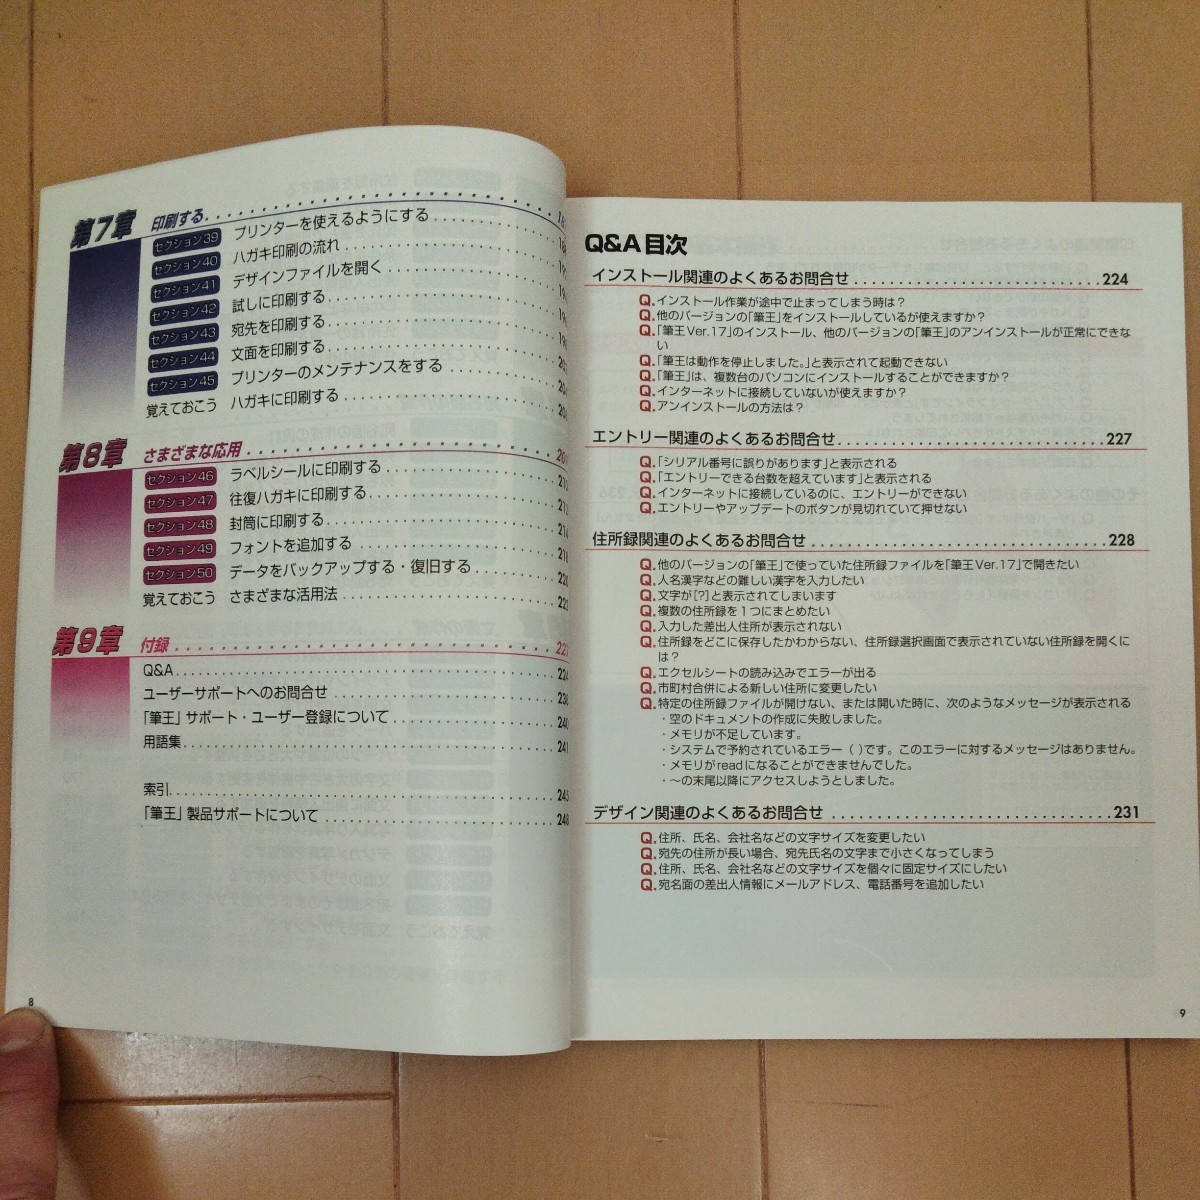 第7章 印刷する
セクション39 プリンターを使えるようにする
セクション40 ハガキ印刷の流れ
セクション41 デザインファイルを開く
セクション42 試しに印刷する
セクション43 宛先を印刷する
セクション44 文面を印刷する
セクション45 プリンターのメンテナンスをする
覚えておこう ハガキに印刷する
第8章 さまざまな応用
セクション46 ラベルシールに印刷する
セクション47 往復ハガキに印刷する
セクション48 封筒に印刷する
セクション49 フォントを追加する
セクション50 データをバックアップする・復旧する
覚えておこう さまざまな活用法
第9章 付録
Q&A 224
ユーザーサポートへのお問合せ
「筆王」サポート・ユーザー登録について 240
用語集 241
索引 245
「筆王」製品サポートについて 248
8
Q&A 目次
インストール関連のよくあるお問合せ 224
Q.インストール作業が途中で止まってしまう時は？
Q.他のバージョンの「筆王」をインストールしているが使えますか？
Q.「筆王 Ver.17」のインストール、他のバージョンの「筆王」のアンインストールが正常にできな
い
Q.「筆王は動作を停止しました。」と表示されて起動できない
Q.「筆王」は、複数台のパソコンにインストールすることができますか？
Q.インターネットに接続していないが使えますか？
Q.アンインストールの方法は？
エントリー関連のよくあるお問合せ 227
Q.「シリアル番号に誤りがあります」と表示される
Q.「エントリーできる台数を超えています」と表示される
Q.インターネットに接続しているのに、エントリーができない
Q.エントリーやアップデートのボタンが見切れていて押せない
住所録関連のよくあるお問合せ 228
Q.他のバージョンの「筆王」で使っていた住所録ファイルを「筆王 Ver.17」で開きたい
Q.人名漢字などの難しい漢字を入力したい
Q.文字が[?]と表示されてしまいます
Q.複数の住所録を1つにまとめたい
Q.入力した差出人住所が表示されない
Q.住所録をどこに保存したかわからない、住所録選択画面で表示されていない住所録を開くに
は？
Q.エクセルシートの読み込みでエラーが出る
Q.市町村合併による新しい住所に変更したい
Q.特定の住所録ファイルが開けない、または開いた時に、次のようなメッセージが表示される
・空のドキュメントの作成に失敗しました。
・メモリが不足しています。
・システムで予約されているエラー（ ）です。このエラーに対するメッセージはありません。
・メモリがreadになることができませんでした。
・～の末尾以降にアクセスしようとしました。
デザイン関連のよくあるお問合せ 231
Q.住所、氏名、会社名などの文字サイズを変更したい
Q.宛先の住所が長い場合、宛先氏名の文字まで小さくなってしまう
Q.住所、氏名、会社名などの文字サイズを個々に固定サイズにしたい
Q.宛名面の差出人情報にメールアドレス、電話番号を追加したい
9